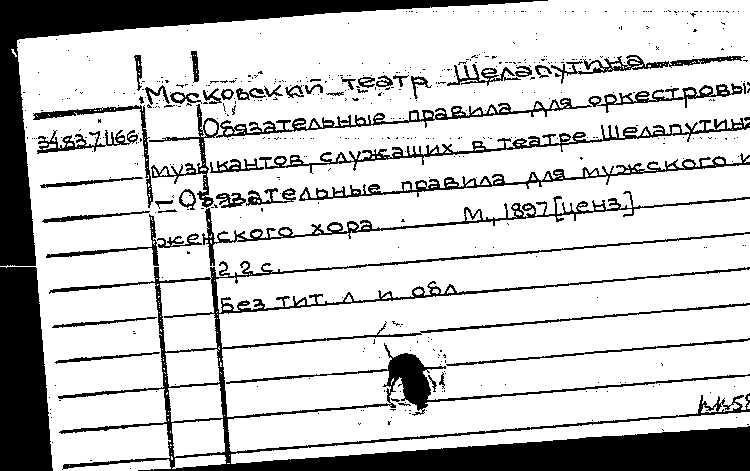 Московский театр Шелапутина
34.83.7.1166 Обязательные правила для оркестровых
музыкантов, служащих в театре Шелапутина
— Обязательные правила для мужского и
женского хора. М., 1897 [ценз.].
2,2 с.
Без тит. л. и обл.